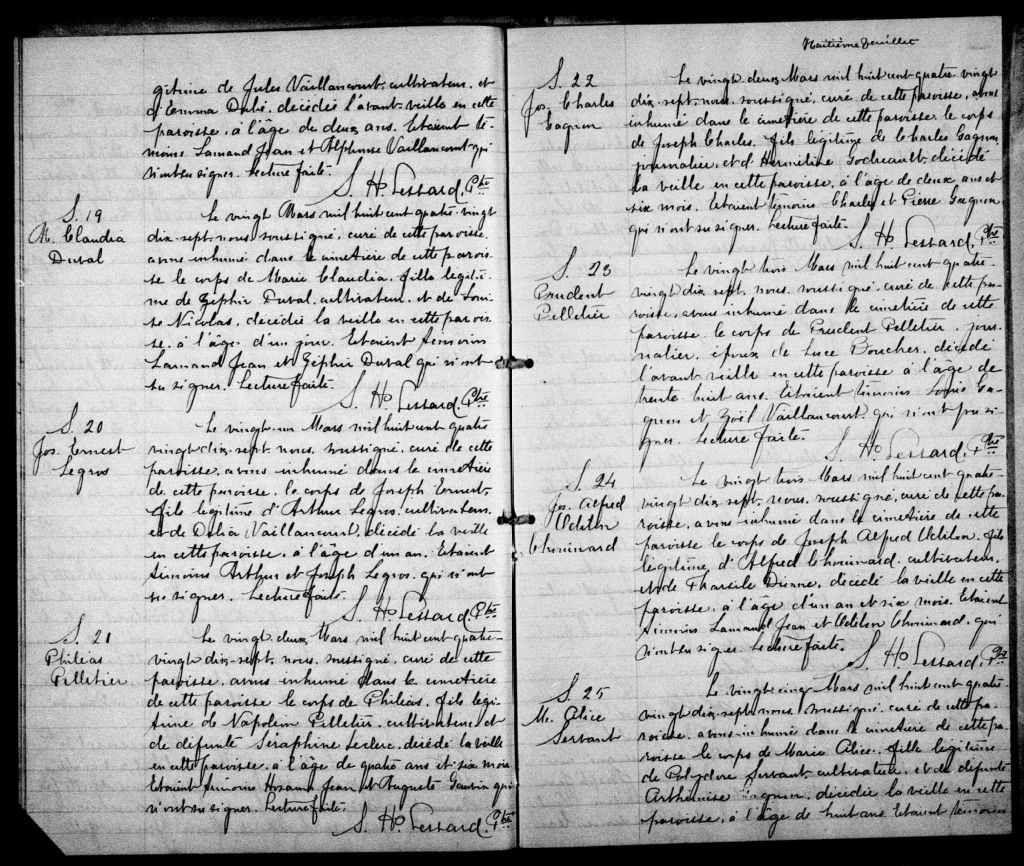 gitime de Jules Vaillancourt, cultivateur, et
d'Emma Dubé, décédée l'avant-veille en cette
paroisse, à l'âge de deux ans. Etaient té-
moins Lamand Jean et Alphonse Vaillancourt qui
n'ont su signer. Lecture faite.
S. Ho. Lessard, Ptre
S. 19
M. Claudia
Duval
Le vingt Mars mil huit cent quatre-vingt
dix-sept, nous soussigné, curé de cette paroisse,
avons inhumé dans le cimetière de cette parois-
se le corps de Marie Claudia, fille légiti-
me de Zéphir Duval, cultivateur, et de Loui-
se Nicolas, décédée la veille en cette parois-
se, à l'âge d'un jour. Etaient témoins
Lamand Jean et Zéphir Duval qui n'ont
su signer. Lecture faite.
S. Ho. Lessard, Ptre
S. 20
Jos. Ernest
Legros
Le vingt-un Mars mil huit cent quatre
vingt dix-sept, nous, soussigné, curé de cette
paroisse, avons inhumé dans le cimetière
de cette paroisse, le corps de Joseph Ernest,
fils légitime d'Arthur Legros, cultivateur,
et de Delia Vaillancourt, décédé la veille
en cette paroisse, à l'âge d'un an. Etaient
témoins Arthur et Joseph Legros, qui n'ont
su signer. Lecture faite.
S. Ho. Lessard, Ptre
S. 21
Philéas
Pelletier
Le vingt deux Mars mil huit cent quatre-
vingt dix-sept, nous, soussigné, curé de cette
paroisse, avons inhumé dans le cimetière
de cette paroisse le corps de Philéas, fils légi-
time de Napoléon Pelletier, cultivateur, et
de défunte Séraphine Leclerc, décédé la veille
en cette paroisse, à l'âge de quatre ans et six mois.
Etaient témoins Hosanna Jean et Auguste Gauvin qui
n'ont su signer. Lecture faite.
S. Ho. Lessard, Ptre
Huitième feuillet
S. 22
Jos. Charles
Gagnon
Le vingt-deux Mars mil huit cent quatre-vingt
dix-sept, nous, soussigné, curé de cette paroisse, avons
inhumé dans le cimetière de cette paroisse, le corps
de Joseph Charles, fils légitime de Charles Gagnon,
journalier, et d'Hermiline Godreault, décédé
la veille en cette paroisse, à l'âge de deux ans et
six mois. Etaient témoins Charles et Pierre Gagnon
qui n'ont su signer. Lecture faite.
S. Ho. Lessard, Ptre
S. 23
Prudent
Pelletier
Le vingt trois Mars mil huit cent quatre-
vingt dix-sept, nous, soussigné, curé de cette pa-
roisse, avons inhumé dans le cimetière de cette
paroisse, le corps de Prudent Pelletier, jour-
nalier, époux de Luce Boucher, décédé
l'avant veille en cette paroisse à l'âge de
trente huit ans. Etaient témoins Louis Ga-
gnon et Zoël Vaillancourt, qui n'ont pu si-
gner. Lecture faite.
S. Ho. Lessard, Ptre
S. 24
Jos. Alfred
Odilon
Chouinard
Le vingt trois Mars mil huit cent quatre-
vingt dix-sept, nous, soussigné, curé de cette pa-
roisse, avons inhumé dans le cimetière de cette
paroisse le corps de Joseph Alfred Odilon, fils
légitime d'Alfred Chouinard, cultivateur,
et de Tharsile Dionne, décédé la veille en cette
paroisse, à l'âge d'un an et six mois. Etaient
témoins Lamand Jean et Odilon Chouinard, qui
n'ont su signer. Lecture faite.
S. Ho. Lessard, Ptre
S. 25
M. Alice
Servant
Le vingt cinq Mars mil huit cent quatre
vingt dix-sept, nous, soussigné, curé de cette pa-
roisse, avons inhumé dans le cimetière de cette pa-
roisse le corps de Marie Alice, fille légitime
de Polydore Servant, cultivateur, et de défunte
Arthémise Gagnon, décédée la veille en cette
paroisse, à l'âge de huit ans. Etaient témoins